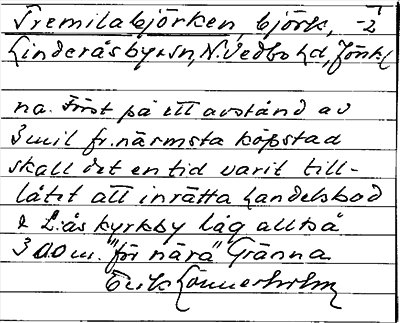 Tremilabjörken, björk, -2
Linderås bysn, N. Vedbo hd, Jönk l
na. Först på ett avstånd av
3 mil fr. närmsta köpstad
skall det en tid varit till-
låtit att inrätta handelsbod
& L:ås kyrkby låg alltså
300 m. "för nära" Gränna
Erik Lönnerholm